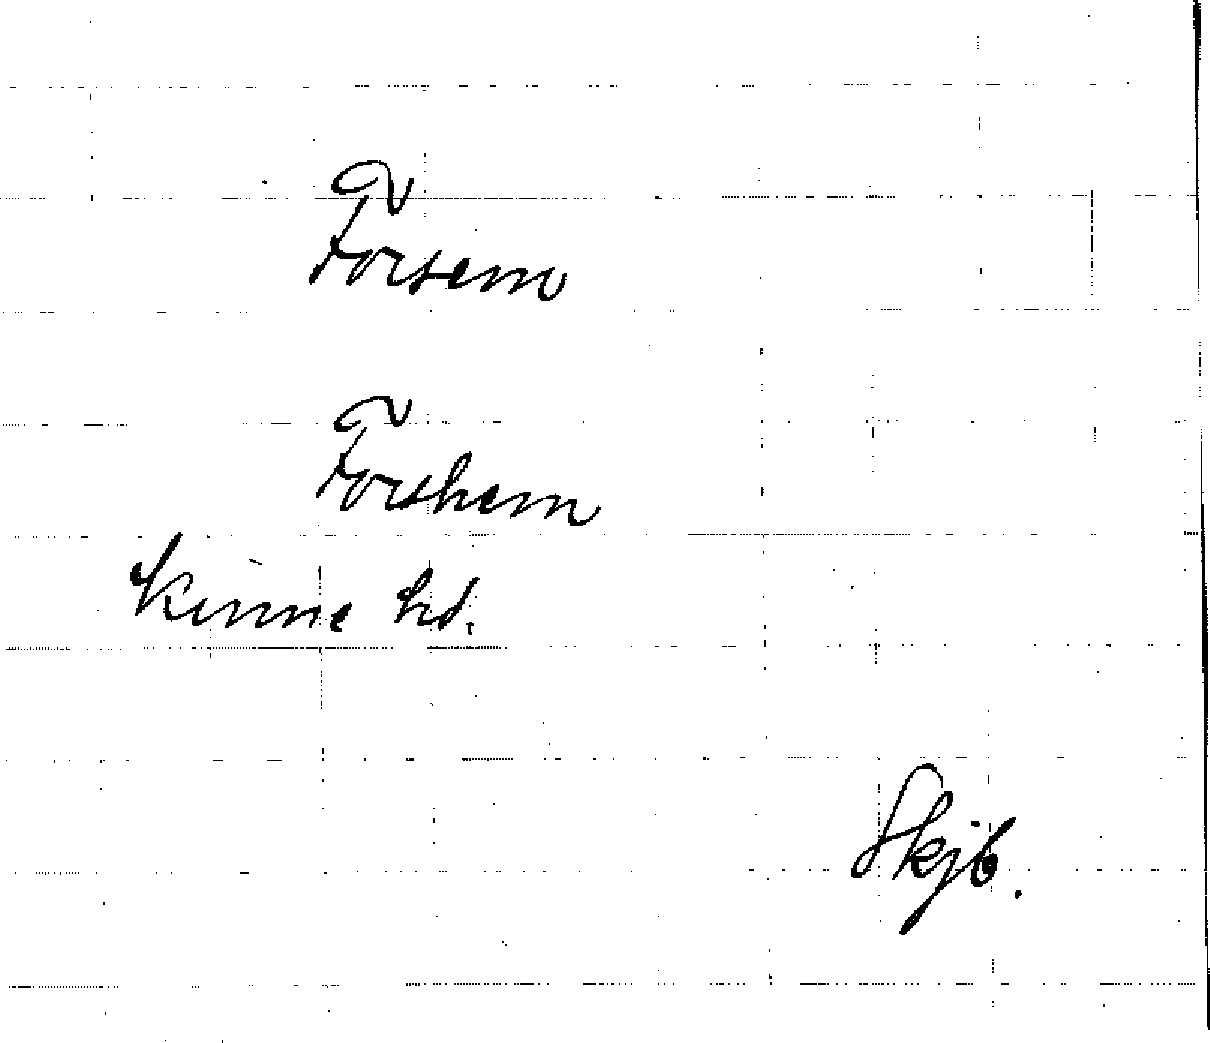 Forsem
Forshem
Kinne hd.
Skjb.